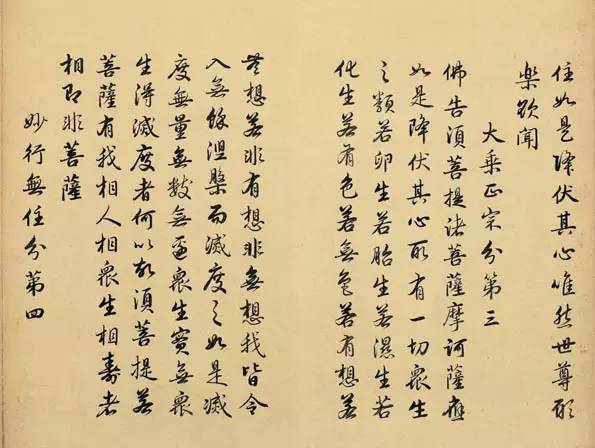 住如是降伏其心唯然世尊願
樂欲聞
大乘正宗分第三
佛告須菩提諸菩薩摩訶薩應
如是降伏其心所有一切眾生
之類若卵生若胎生若濕生若
化生若有色若無色若有想若
無想若非有想非無想我皆令
入無餘涅槃而滅度之如是滅
度無量無數無邊眾生實無眾
生得滅度者何以故須菩提若
菩薩有我相人相眾生相壽者
相即非菩薩
妙行無住分第四